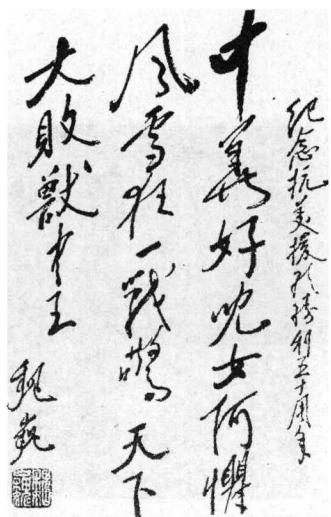 纪念抗美援朝胜利五十周年
中華好兒女何懼
风雪狂一戰驚天下
大败獸中王
魏巍